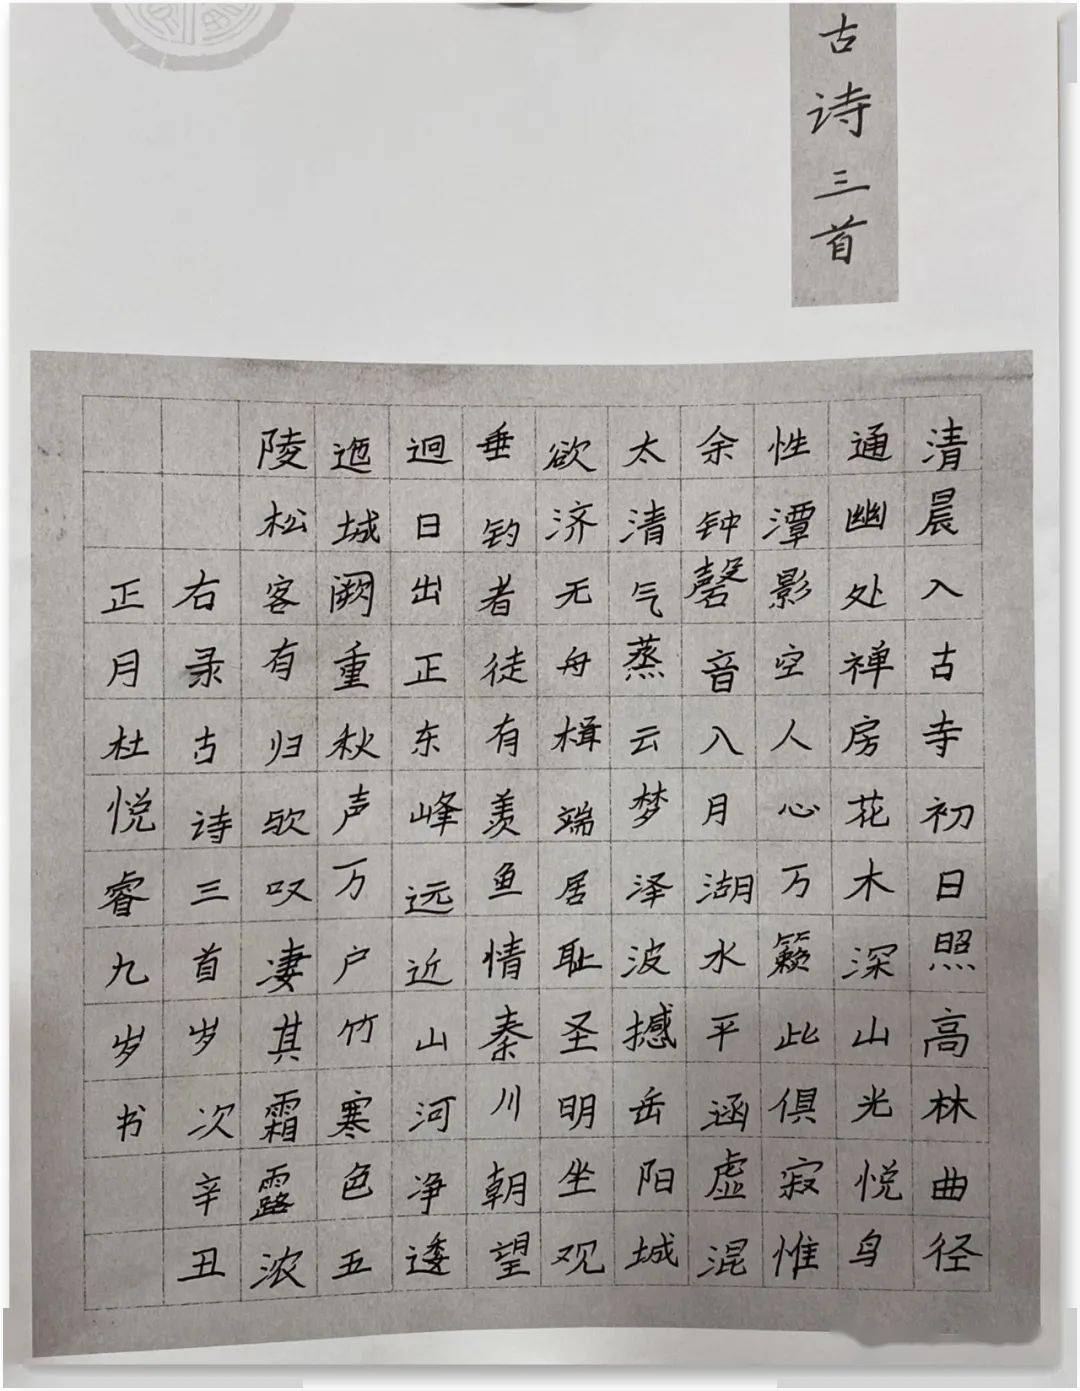 古诗三首
清晨入古寺初日照高林曲径
通幽处禅房花木深山光悦鸟
性潭影空人心万籁此俱寂惟
余钟磬音入月湖水平涵虚混
太清气蒸云梦泽波撼岳阳城
欲济无舟楫端居耻圣明坐观
垂钓者徒有羡鱼情秦川朝望
迥日出正东峰远近山河净逶
迤城阙重秋声万户竹寒色五
陵松客有归欤叹凄其霜露浓
右录古诗三首岁次辛丑
正月杜悦睿九岁书